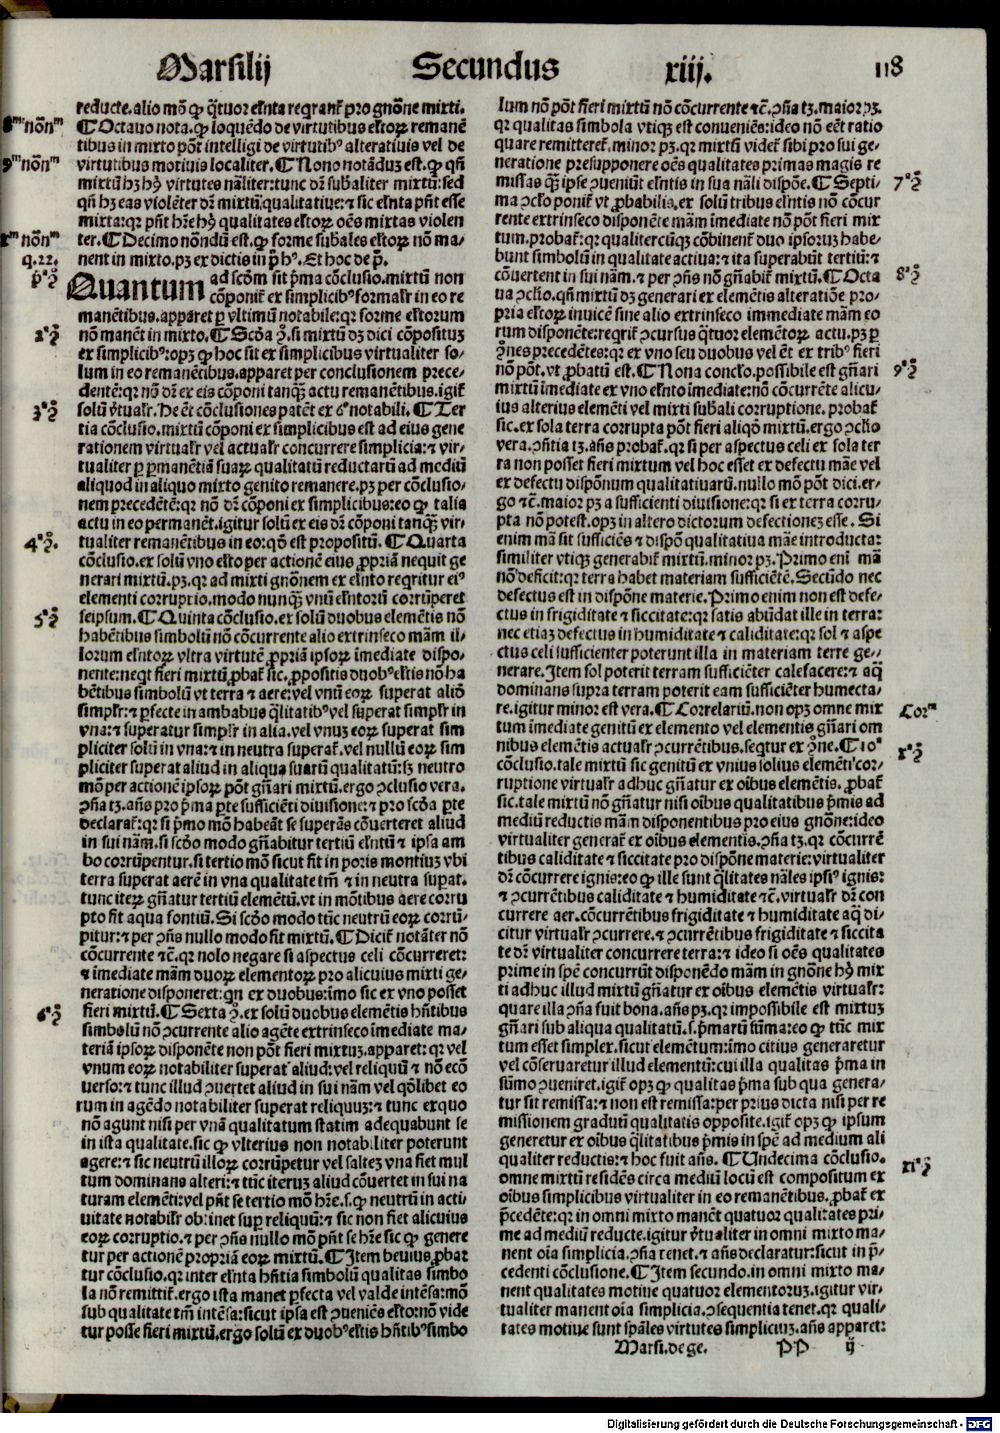 Marsilij Secundus xiij. 118
reducte. alio mõ ꝙ q̃tuor elñta reqrant̃ pro gnõne mixti.
8m nõnm
¶ Octauo nota. ꝙ loquẽdo de virtutibus eltoꝝ remanẽ
tibus in mixto põt intelligi de virtutibꝰ alteratiuis vel de
9m nõnm
virtutibus motiuis localiter. ¶ Nono notãduꝫ est. ꝙ qñ
mixtũ hꝫ hꝰ virtutes nãliter: tunc dr̃ subãliter mixtũ: sed
qñ hꝫ eas violẽter dr̃ mixtũ qualitatiue: ⁊ sic elñta pñt esse
mixta: qꝛ pñt hr̃e hꝰ qualitates eltoꝝ oẽs mixtas violen
xm nõnm
ter. ¶ Decimo nõndũ est. ꝙ forme subãles eltoꝝ nõ ma-
q. 22.
nent in mixto. pꝫ ex dictis in p̃ hꝰ. Et hoc de p̃.
Quantum ad scõm sit p̃ma cõclusio. mixtũ non
cõponit̃ ex simplicibꝰ formalr̃ in eo re
manẽtibus. apparet ꝑ vltimũ notabile: qꝛ forme eltorum
nõ manẽt in mixto. ¶ Scõa ꝯ. si mixtũ dꝫ dici cõposituꝫ
ex simplicibꝰ: opꝫ ꝙ hoc sit ex simplicibus virtualiter so-
lum in eo remanẽtibus. apparet per conclusionem prece-
dentẽ: qꝛ nõ dr̃ ex eis cõponi tanqꝫ̃ actu remanẽtibus. igit̃
solũ v̓tualr̃. He ẽt cõclusiones patẽt ex 6º notabili. ¶ Ter
tia cõclusio. mixtũ cõponi ex simplicibus est ad eius gene
rationem virtualr̃ vel actualr̃ concurrere simplicia: ⁊ vir-
tualiter ꝑ ꝑmanẽtiã suaꝝ qualitatũ reductarũ ad mediũ
aliquod in aliquo mixto genito remanere. pꝫ per cõclusio-
nem precedẽtẽ: qꝛ nõ dr̃ cõponi ex simplicibus: eo ꝙ talia
actu in eo permanẽt. igitur solũ ex eis dr̃ cõponi tanqꝫ̃ vir-
tualiter remanẽtibus in eo: qõ est propositũ. ¶ Quarta
cõclusio. ex solũ vno elto per actionẽ eius ꝓpriã nequit ge
nerari mixtũ. pꝫ. qꝛ ad mixti gnõnem ex elñto reqritur eiꝰ
elementi corruptio. modo nunqꝫ̃ vnũ elñtorũ corrũperet
seipsum. ¶ Quinta cõclusio. ex solũ duobus elemẽtis nõ
habẽtibus simbolũ nõ cõcurrente alio extrinseco mãm il-
lorum elñtoꝝ vltra virtutẽ ꝓpriã ipsoꝝ ĩmediate dispo-
nente: neqt fieri mixtũ ꝓbat̃ sic. ꝓpositis duobꝰ eltis nõ ha
bẽtibus simbolũ vt terra ⁊ aere: vel vnũ eoꝝ superat aliõ
simplr̃: ⁊ ꝑfecte in ambabus q̃litatibꝰ vel superat simplr̃ in
vna: ⁊ superatur simplr̃ in alia. vel vnuꝫ eoꝝ superat sim
pliciter solũ in vna: ⁊ in neutra superat̃. vel nullũ eoꝝ sim
pliciter superat aliud in aliqua suarũ qualitatũ: sꝫ neutro
mõ per actionẽ ipsoꝝ põt gñari mixtũ. ergo ꝯclusio vera.
ꝯña tꝫ. añs pro p̃ma ꝑte sufficiẽti diuisione: ⁊ pro scõa ꝑte
declarat̃: qꝛ si p̃mo mõ habeãt se superãs cõuerteret aliud
in sui nãm. si scõo modo gñabitur tertiũ elñtũ ⁊ ipsa am
bo corrũpentur. si tertio mõ sicut fit in poris montiuꝫ vbi
terra superat aerẽ in vna qualitate tm̃ ⁊ in neutra supat̃.
tunc iteꝝ gñatur tertiũ elemẽtũ. vt in mõtibus aere corru
pto fit aqua fontiũ. Si scõo modo tũc neutrũ eoꝝ corrũ-
pitur: ⁊ per ꝯñs nullo modo fit mixtũ. ¶ Dicit̃ notãter nõ
cõcurrente ⁊c̃. qꝛ nolo negare si aspectus celi cõcurreret:
⁊ ĩmediate mãm duoꝝ elementoꝝ pro alicuius mixti ge-
neratione disponeret: qn ex duobus: ĩmo sic ex vno posset
fieri mixtũ. ¶ Sexta ꝯ. ex solũ duobus elemẽtis hñtibus
simbolũ nõ ꝯcurrente alio agẽte extrinseco ĩmediate ma-
teriã ipsoꝝ disponẽte non põt fieri mixtuꝫ. apparet: qꝛ vel
vnum eoꝝ notabiliter superat aliud: vel reliquũ ⁊ nõ ecõ
uerso: ⁊ tunc illud ꝯuertet aliud in sui nãm vel qõlibet eo
rum in agẽdo notabiliter superat reliquuꝫ: ⁊ tunc ex quo
nõ agunt nisi per vnã qualitatum statim adequabunt se
in ista qualitate. sic ꝙ vlterius non notabiliter poterunt
agere: ⁊ sic neutrũ illoꝝ corrũpetur vel salteꝫ vna fiet mul
tum dominans alteri: ⁊ tũc iteruꝫ aliud cõuertet in sui na
turam elemẽti: vel pñt se tertio mõ hr̃e. s. ꝙ neutrũ in acti
uitate notabilr̃ obtinet suꝑ reliquũ: ⁊ sic non fiet alicuius
eoꝝ corruptio. ⁊ per ꝯñs nullo mõ pñt se hr̃e sic ꝙ genere
tur per actionẽ propriã eoꝝ mixtũ. ¶ Item breuius ꝓbat
tur cõclusio. qꝛ inter elñta hñtia simbolũ qualitas simbo
la nõ remittit̃. ergo ista manet ꝑfecta vel valde intẽsa: mõ
sub qualitate tm̃ intẽsa: sicut ipsa est ꝯueniẽs elto: nõ vide
tur posse fieri mixtũ. ergo solũ ex duobꝰ eltis hñtibꝰ simbo
lum nõ põt fieri mixtũ nõ cõcurrente ⁊c̃. ꝯña tꝫ. maior pꝫ.
qꝛ qualitas simbola vtiqꝫ est conueniẽs: ideo nõ eẽt ratio
quare remitteret̃. minor pꝫ. qꝛ mixtũ videt̃ sibi pro sui ge-
neratione presupponere oẽs qualitates primas magis re
missas qꝫ̃ ipse ꝯueniũt elñtis in sua nãli dispõe. ¶ Septi-
ma ꝯclo ponit̃ vt ꝓbabilis. ex solũ tribus elñtis nõ cõcur
rente extrinseco disponẽte mãm ĩmediate nõ põt fieri mix
tum. probat̃: qꝛ qualitercũqꝫ cõbinent̃ duo ipsoruꝫ habe-
bunt simbolũ in qualitate actiua: ⁊ ita superabũt tertiũ: ⁊
cõuertent in sui nãm. ⁊ per ꝯñs nõ gñabit̃ mixtũ. ¶ Octa
ua ꝯclio. qñ mixtũ dꝫ generari ex elemẽtis alteratiõe pro-
pria eltoꝝ inuicẽ sine alio extrinseco immediate mãm eo
rum disponẽte: reqrit̃ ꝯcursus q̃tuor elemẽtoꝝ actu. pꝫ ꝑ
ꝯnes precedẽtes: qꝛ ex vno seu duobus vel ẽt ex tribꝰ fieri
nõ põt. vt ꝓbatũ est. ¶ Nona conclo. possibile est gñari
mixtũ ĩmediate ex vno elñto ĩmediate: nõ cõcurrẽte alicu-
ius alterius elemẽti vel mixti subãli corruptione. probat̃
sic. ex sola terra corrupta põt fieri aliqõ mixtũ. ergo ꝯclio
vera. ꝯñtia tꝫ. añs probat̃. qꝛ si per aspectus celi ex sola ter
ra non posset fieri mixtum vel hoc esset ex defectu mãe vel
ex defectu dispõnum qualitatiuarũ. nullo mõ põt dici. er-
go ⁊c̃. maior pꝫ a sufficienti diuisione: qꝛ si ex terra corru-
pta nõ potest. opꝫ in altero dictorum defectioneꝫ esse. Si
enim mã sit sufficiẽs ⁊ dispõ qualitatiua mãe introducta:
similiter vtiqꝫ generabit̃ mixtũ. minor pꝫ. Primo eni mã
nõ deficit: qꝛ terra habet materiam sufficiẽtẽ. Secũdo nec
defectus est in dispõne materie. Primo enim non est defe-
ctus in frigiditate ⁊ siccitate: qꝛ satis abũdat ille in terra:
nec etiaꝫ defectus in humiditate ⁊ caliditate: qꝛ sol ⁊ aspe
ctus celi sufficienter poterunt illa in materiam terre ge-
nerare. Item sol poterit terram sufficiẽter calefacere: ⁊ aq̃
dominans supra terram poterit eam sufficiẽter humecta-
re. igitur minor est vera. ¶ Correlariũ. non opꝫ omne mix
tum ĩmediate genitũ ex elemento vel elementis gñari om
nibus elemẽtis actualr̃ ꝯcurrẽtibus. seqtur ex ꝯne. ¶ 10ª
cõclusio. tale mixtũ sic genitũ ex vnius solius elemẽti cor-
ruptione virtualr̃ adhuc gñatur ex oĩbus elemẽtis. ꝓbat̃
sic. tale mixtũ nõ gñatur nisi oĩbus qualitatibus p̃mis ad
mediũ reductis mãm disponentibus pro eius gnõne: ideo
virtualiter generat̃ ex oĩbus elementis. ꝯña tꝫ. qꝛ cõcurrẽ
tibus caliditate ⁊ siccitate pro dispõne materie: virtualiter
dr̃ cõcurrere ignis: eo ꝙ ille sunt q̃litates nãles ipsiꝰ ignis:
⁊ ꝯcurrẽtibus caliditate ⁊ humiditate ⁊c̃. virtualr̃ dr̃ con
currere aer. cõcurrẽtibus frigiditate ⁊ humiditate aq̃ di-
citur virtualr̃ ꝯcurrere. ⁊ ꝯcurrẽtibus frigiditate ⁊ siccita
te dr̃ virtualiter concurrere terra: ⁊ ideo si oẽs qualitates
prime in spẽ concurrũt disponẽdo mãm in gnõne hꝰ mix
ti adhuc illud mixtũ gñatur ex oĩbus elemẽtis virtualr̃:
quare illa ꝯña fuit bona. añs pꝫ. qꝛ impossibile est mixtuꝫ
gñari sub aliqua qualitatũ. s. p̃marũ sũma: eo ꝙ tũc mix
tum esset simplex. sicut elemẽtum: ĩmo citius generaretur
vel cõseruaretur illud elementũ: cui illa qualitas p̃ma in
sũmo ꝯueniret. igit̃ opꝫ ꝙ qualitas p̃ma sub qua genera-
tur sit remissa: ⁊ non est remissa: per prius dicta nisi per re
missionem graduũ qualitatis opposite. igit̃ opꝫ ꝙ ipsum
generetur ex oĩbus q̃litatibus p̃mis in spẽ ad medium ali
qualiter reductis: ⁊ hoc fuit añs. ¶ Undecima cõclusio.
omne mixtũ residẽs circa mediũ locũ est compositum ex
oĩbus simplicibus virtualiter in eo remanẽtibus. ꝓbat̃ ex
p̃cedẽte: qꝛ in omni mixto manẽt quatuor qualitates pri-
me ad mediũ reducte. igitur v̓tualiter in omni mixto ma-
nent oĩa simplicia. ꝯña tenet. ⁊ añs declaratur: sicut in p̃-
cedenti cõclusione. ¶ Item secundo. in omni mixto ma-
nent qualitates motiue quatuor elementoruꝫ. igitur vir-
tualiter manent oĩa simplicia. ꝯsequentia tenet. qꝛ quali-
tates motiue sunt spãles virtutes simpliciuꝫ. añs apparet:
p̃ª ꝯ
2ª ꝯ
3ª ꝯ
4ª ꝯ.
5ª ꝯ
6ª ꝯ
7ª ꝯ
8ª ꝯ
9ª ꝯ
Corm
xª ꝯ
xiª ꝯ
Marsi. de ge. PP ij
Digitalisierung gefördert durch die Deutsche Forschungsgemeinschaft - DFG